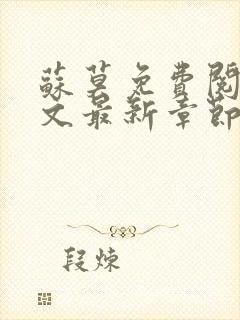 蘇莫免費閱
文最新章節
段煉